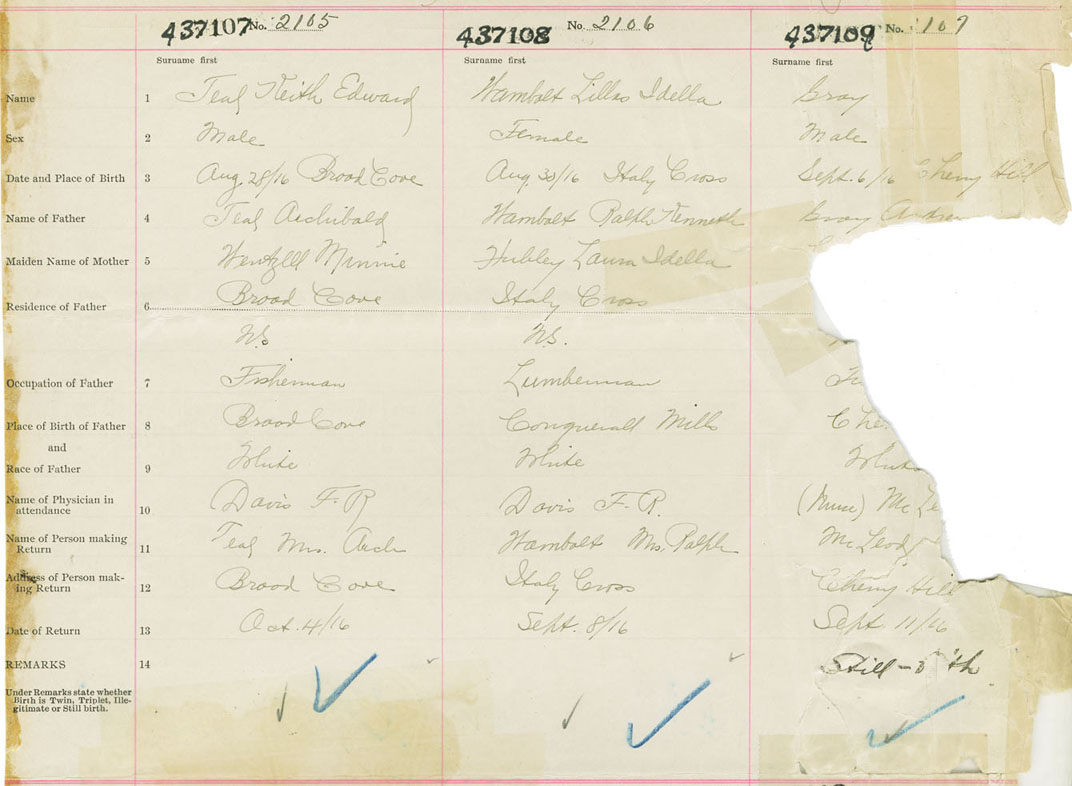 437107 No. 2105 437108 No. 2106 437109 No. 107
Surname first Surname first Surname first
Name 1 Teal Keith Edward Wambolt Lillas Idella Gray
Sex 2 Male Female Male
Date and Place of Birth 3 Aug. 28/16 Broad Cove Aug. 30/16 Italy Cross Sept. 6/16 Cherry Hill
Name of Father 4 Teal Archibald Wambolt Ralph Kenneth Gray
Maiden Name of Mother 5 Wentzell Minnie Hubley Laura Idella
Broad Cove Italy Cross
Residence of Father 6
N.S. N.S.
Occupation of Father 7 Fisherman Lumberman
Place of Birth of Father 8 Broad Cove Conquerall Mills Che
and
Race of Father 9 White White White
Name of Physician in
attendance 10 Davis F. R Davis F. R. (Nurse) Mc Le
Name of Person making
Return 11 Teal Mrs. Arch Wambolt Mrs. Ralph McLeod
Address of Person mak-
ing Return 12 Broad Cove Italy Cross Cherry Hill
Date of Return 13 Oct. 4/16 Sept. 8/16 Sept. 11/16
REMARKS 14 Still-B th
Under Remarks state whether
Birth is Twin, Triplet, Ille-
gitimate or Still birth.